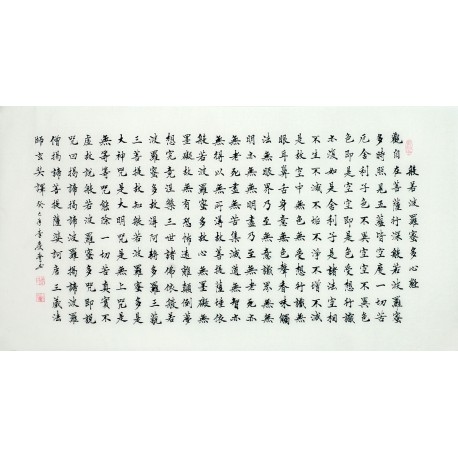 般若波羅蜜多心經
觀自在菩薩行深般若波羅蜜
多時照見五蘊皆空度一切苦
厄舍利子色不異空空不異色
色即是空空即是色受想行識
亦復如是舍利子是諸法空相
不生不滅不垢不淨不增不減
是故空中無色無受想行識無
眼耳鼻舌身意無色聲香味觸
法無眼界乃至無意識界無無
明亦無無明盡乃至無老死亦
無老死盡無苦集滅道無智亦
無得以無所得故菩提薩埵依
般若波羅蜜多故心無罣礙無
罣礙故無有恐怖遠離顛倒夢
想究竟涅槃三世諸佛依般若
波羅蜜多故得阿耨多羅三藐
三菩提故知般若波羅蜜多是
大神咒是大明咒是無上咒是
無等等咒能除一切苦真實不
虛故說般若波羅蜜多咒即說
咒曰揭諦揭諦波羅揭諦波羅
僧揭諦菩提薩婆訶唐三藏法
師玄奘譯